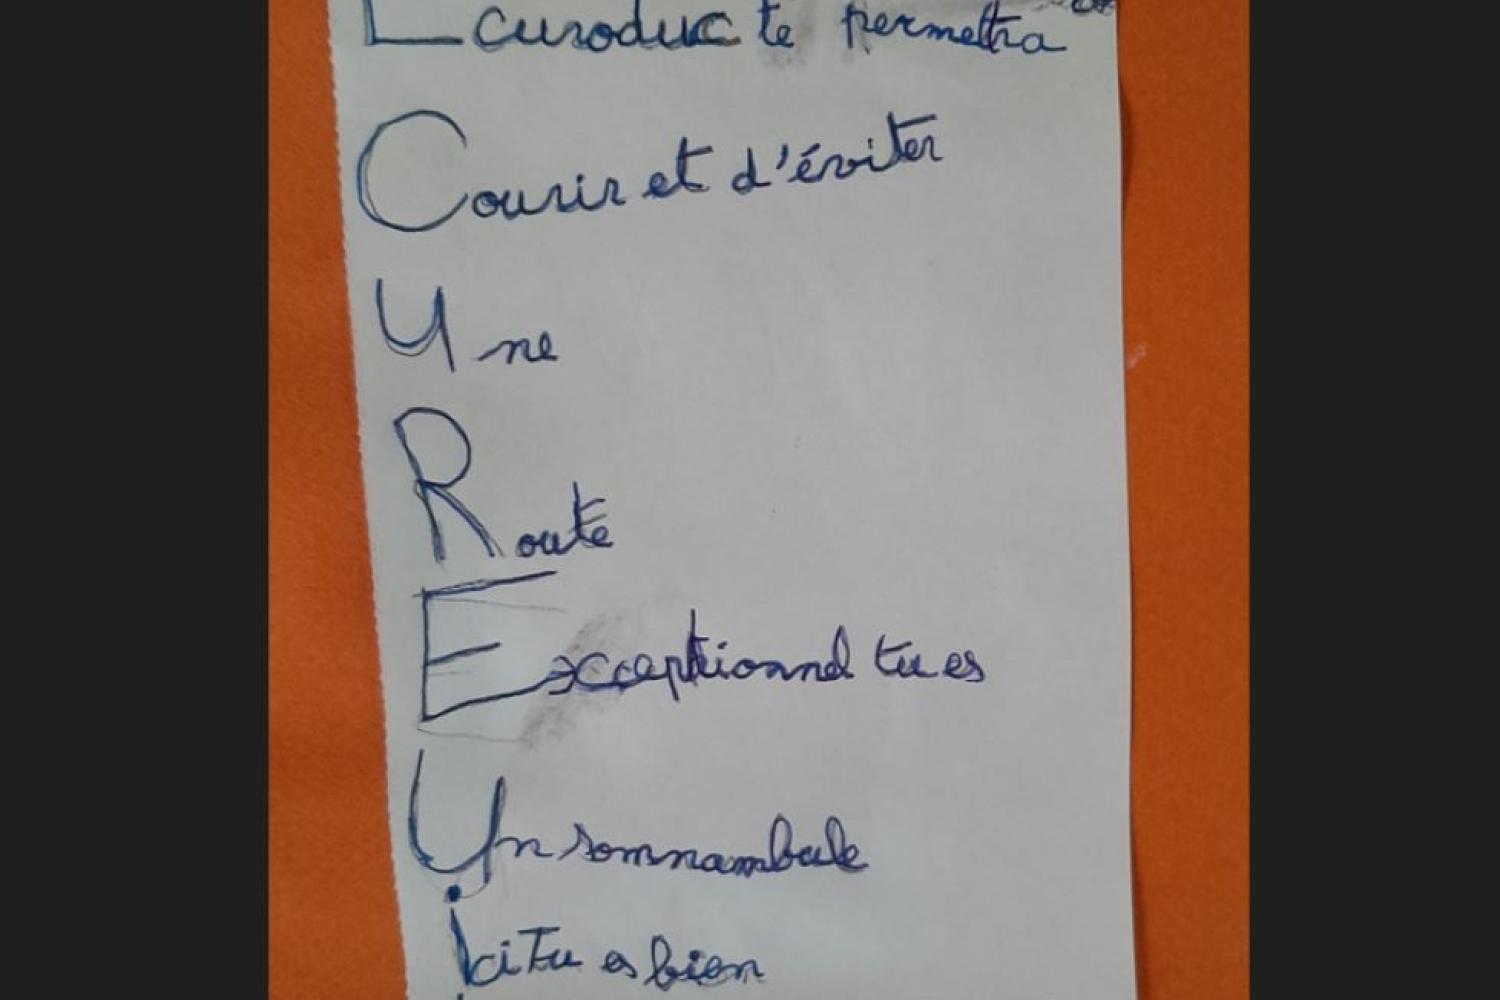 L curoduc te permettra
Courir et d'éviter
Une
Route
Exceptionnel tu es
Un somnambule
ici Tu es bien